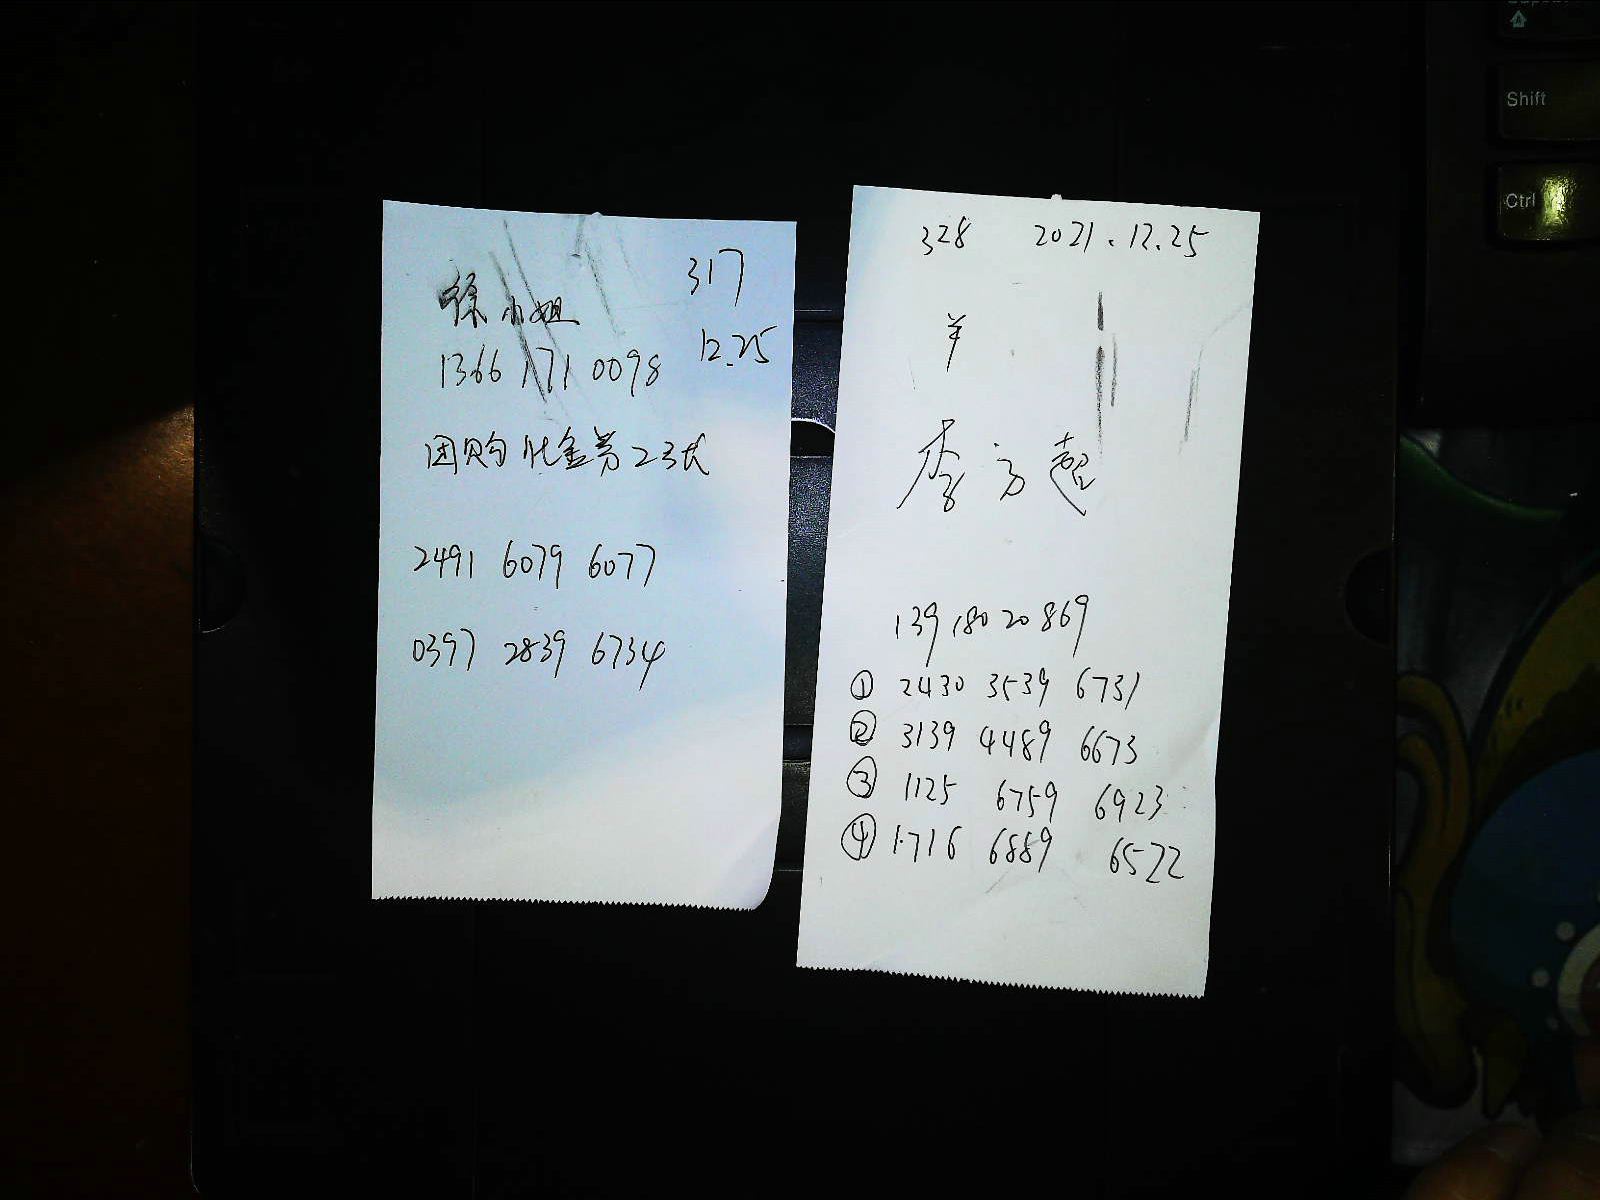 317
徐小姐
12.25
1366 171 0098
团购代金券23代
2491 6079 6077
0397 2839 6734
328 2021.12.25
羊
李方超
139 180 20 869
① 2430 3539 6731
② 3139 4489 6673
③ 1125 6759 6923
④ 1716 6889 6522
Shift
Ctrl